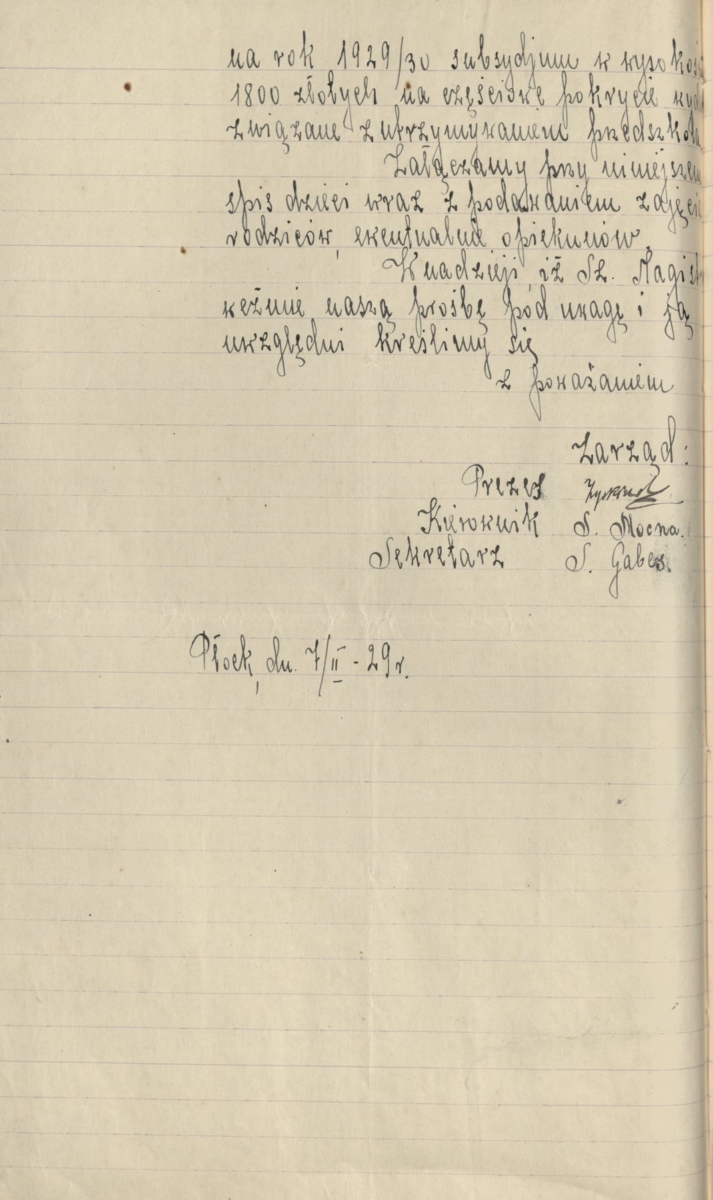 na rok 1929/30 subsydjum w wysokoś
1800 złotych na częściowe pokrycie wyd
związane z utrzymywaniem przedszkol
Załączamy przy niniejszem
spis dzieci wraz z podawaniem zajęci
rodziców, ewentualnie opiekunów.
W nadzieji, iż Sz. Magist
weźmie naszą prośbę pod uwagę i ją
uwzględni kreślimy się
z poważaniem
Zarząd:
Prezes
Kierownik S. Mocna.
Sekretarz S. Gabes.
Płock, dn. 7/II - 29 r.